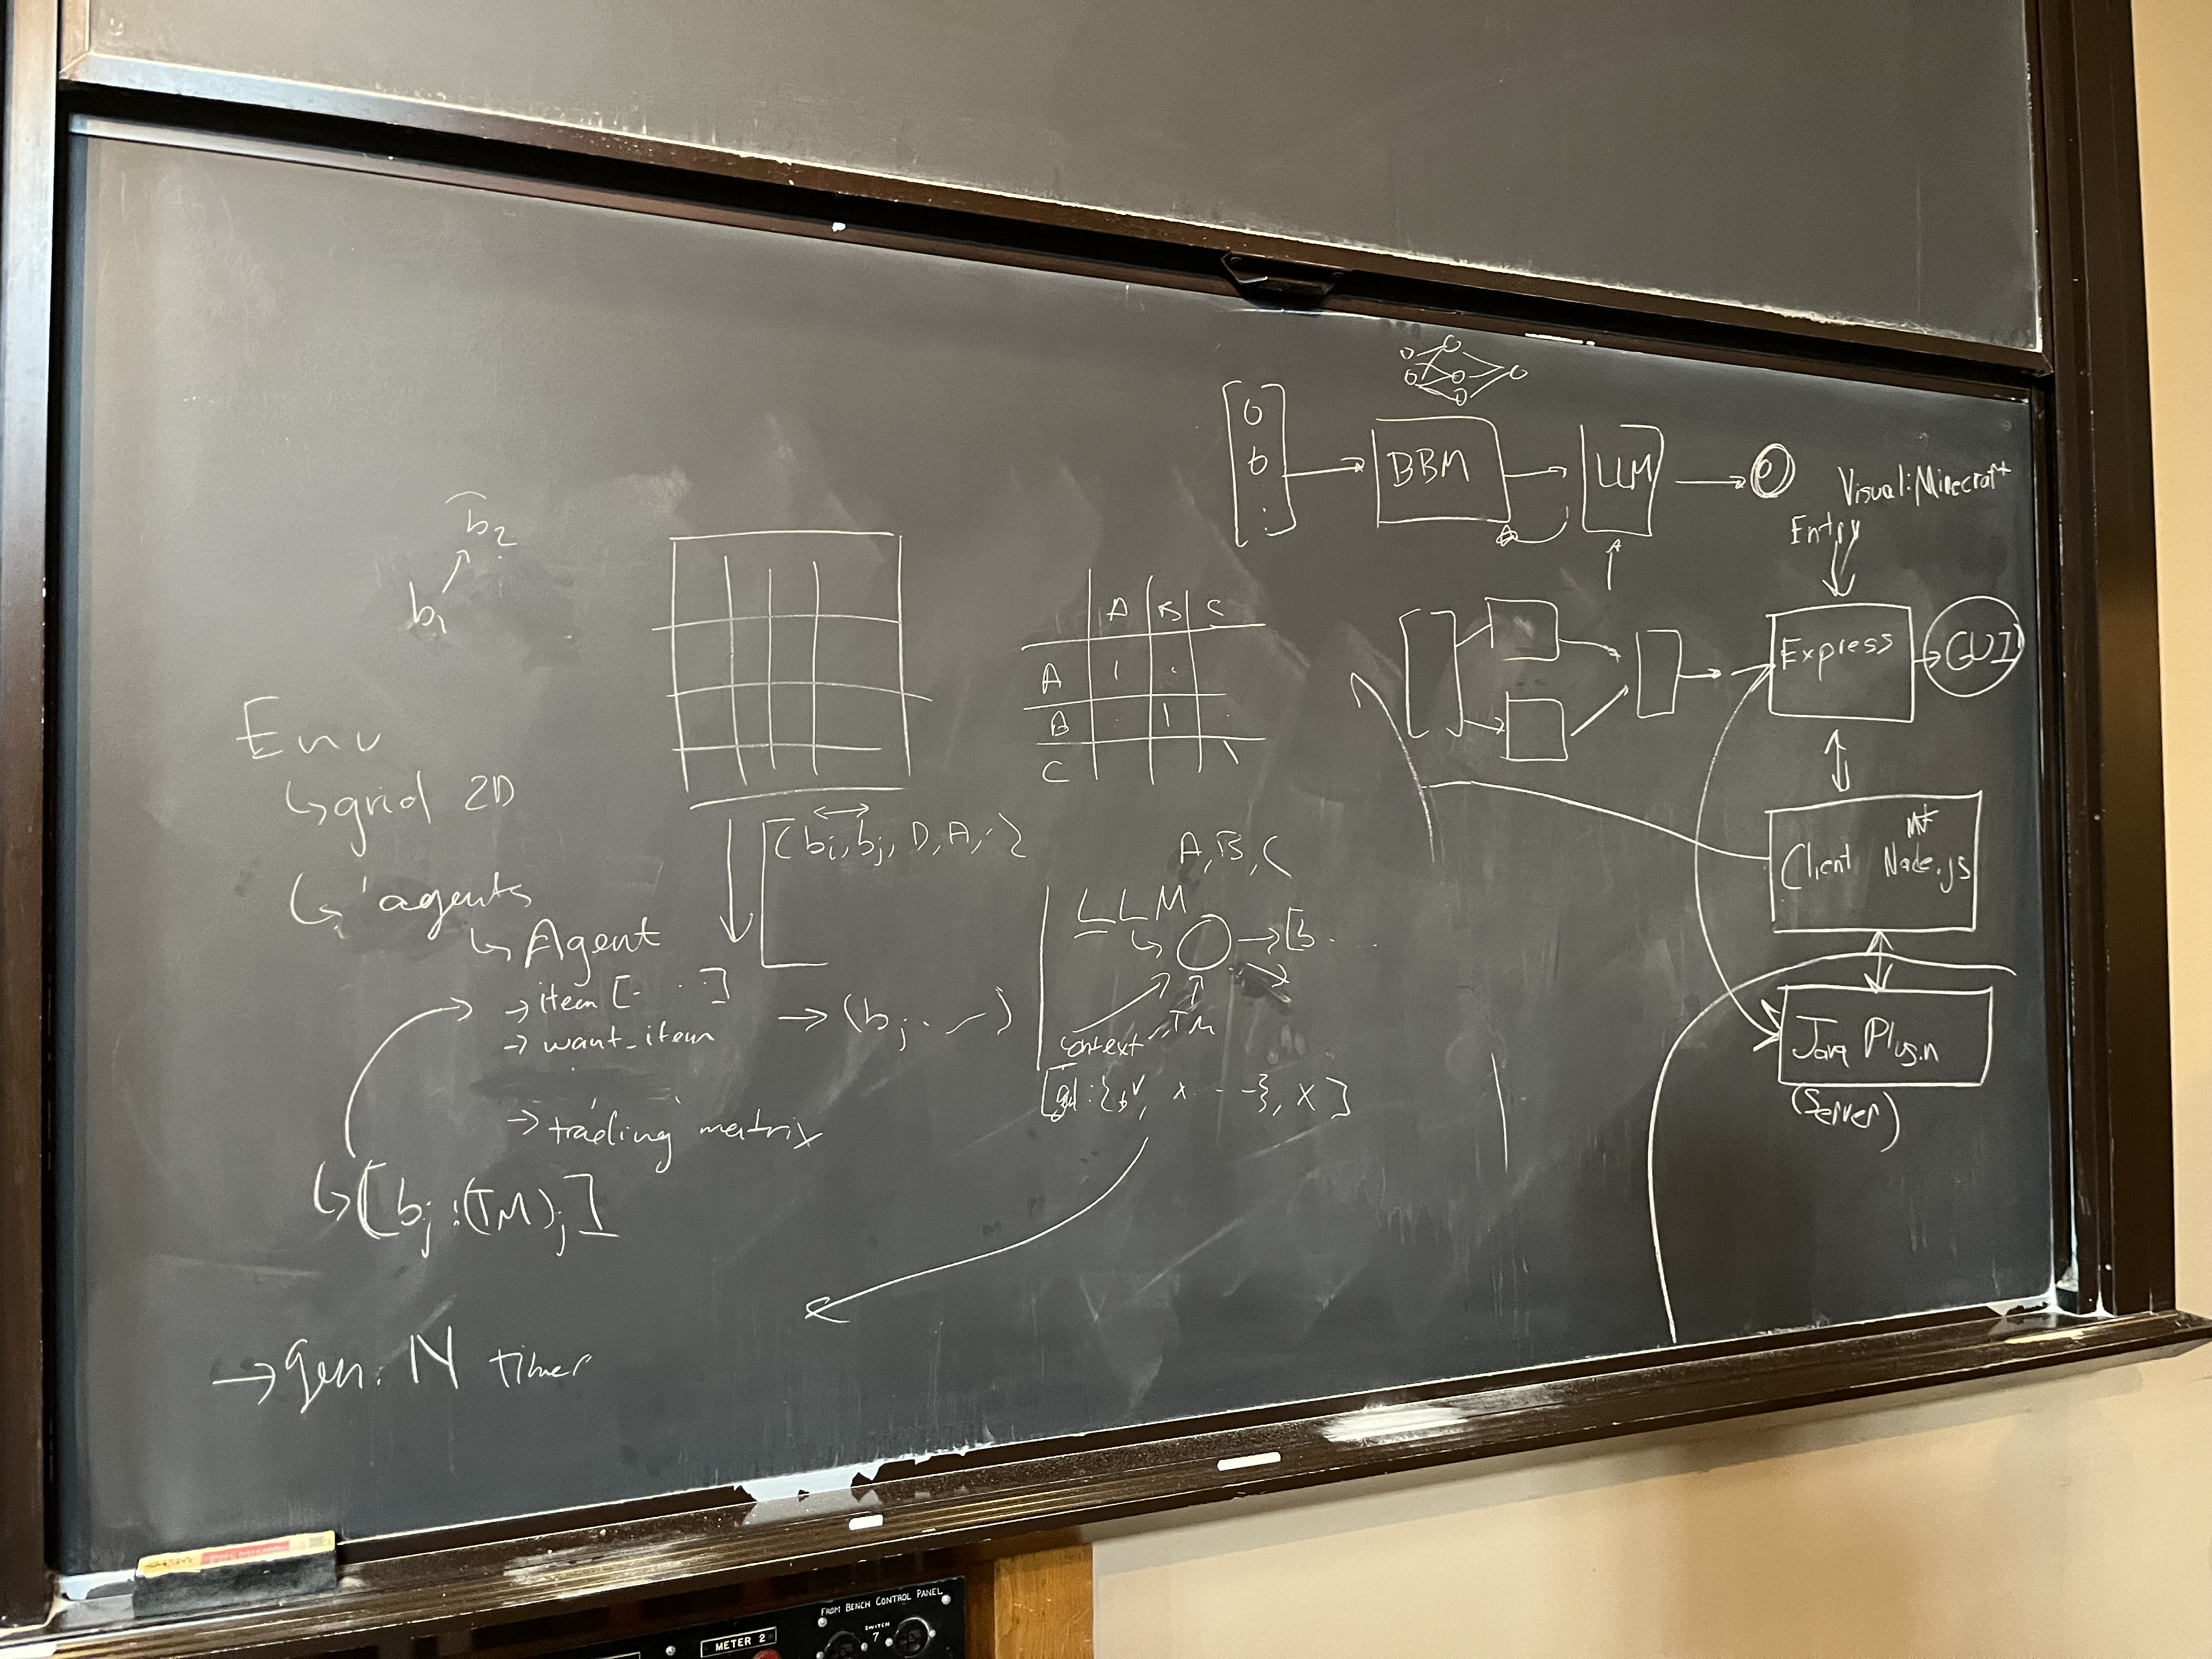 b2
b1
Env
↳ grid 2D
↳ agents
↳ Agent
→ item [- . . ]
→ want_item
→ trading matrix
↳ [bj : (TM)j]
→ gen. N times
[bi, bj, D, A, ·]
→ (bj . —)
A B C
A 1 .
B . 1 .
C \
A, B, C
LLM
→ [b . . .
context TM
BBM
LLM
Visual: Minecraft
Entry
Express
GUI
Client Node.js
Java Plugin
(Server)
FROM BENCH CONTROL PANEL
SWITCH
7
METER 2